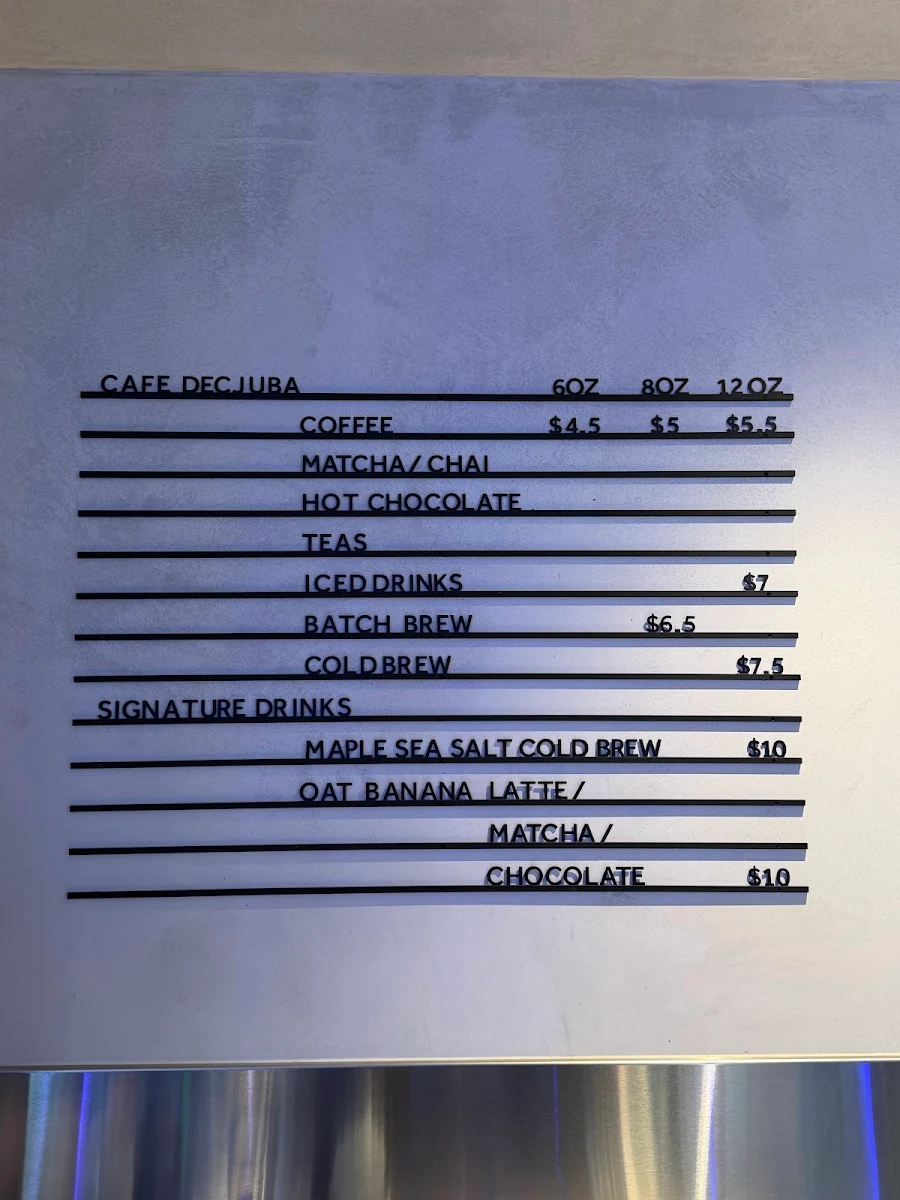 CAFE DECJUBA 6OZ 8OZ 12OZ
COFFEE $4.5 $5 $5.5
MATCHA/CHAI
HOT CHOCOLATE
TEAS
ICED DRINKS $7
BATCH BREW $6.5
COLD BREW $7.5
SIGNATURE DRINKS
MAPLE SEA SALT COLD BREW $10
OAT BANANA LATTE/
MATCHA/
CHOCOLATE $10